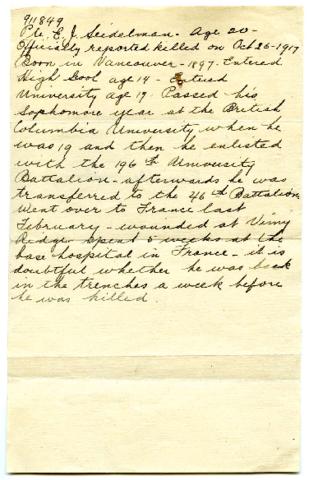 911849
Pte. E. J. Seidelman. Age 20-
Officially reported killed on Oct 26-1917
Born in Vancouver-1897. Entered
High Scool age 14 - Entered
University age 17. Passed his
Sophomore year at the British
Columbia University when he
was 19 and then he enlisted
with the 196th University
Battalion - afterwards he was
transferred to the 46th Battalion.
Went over to France last
February - wounded at Vimy
Ridge spent 5 weeks at the
base hospital in France - it is
doubtful whether he was back
in the trenches a week before
he was killed.